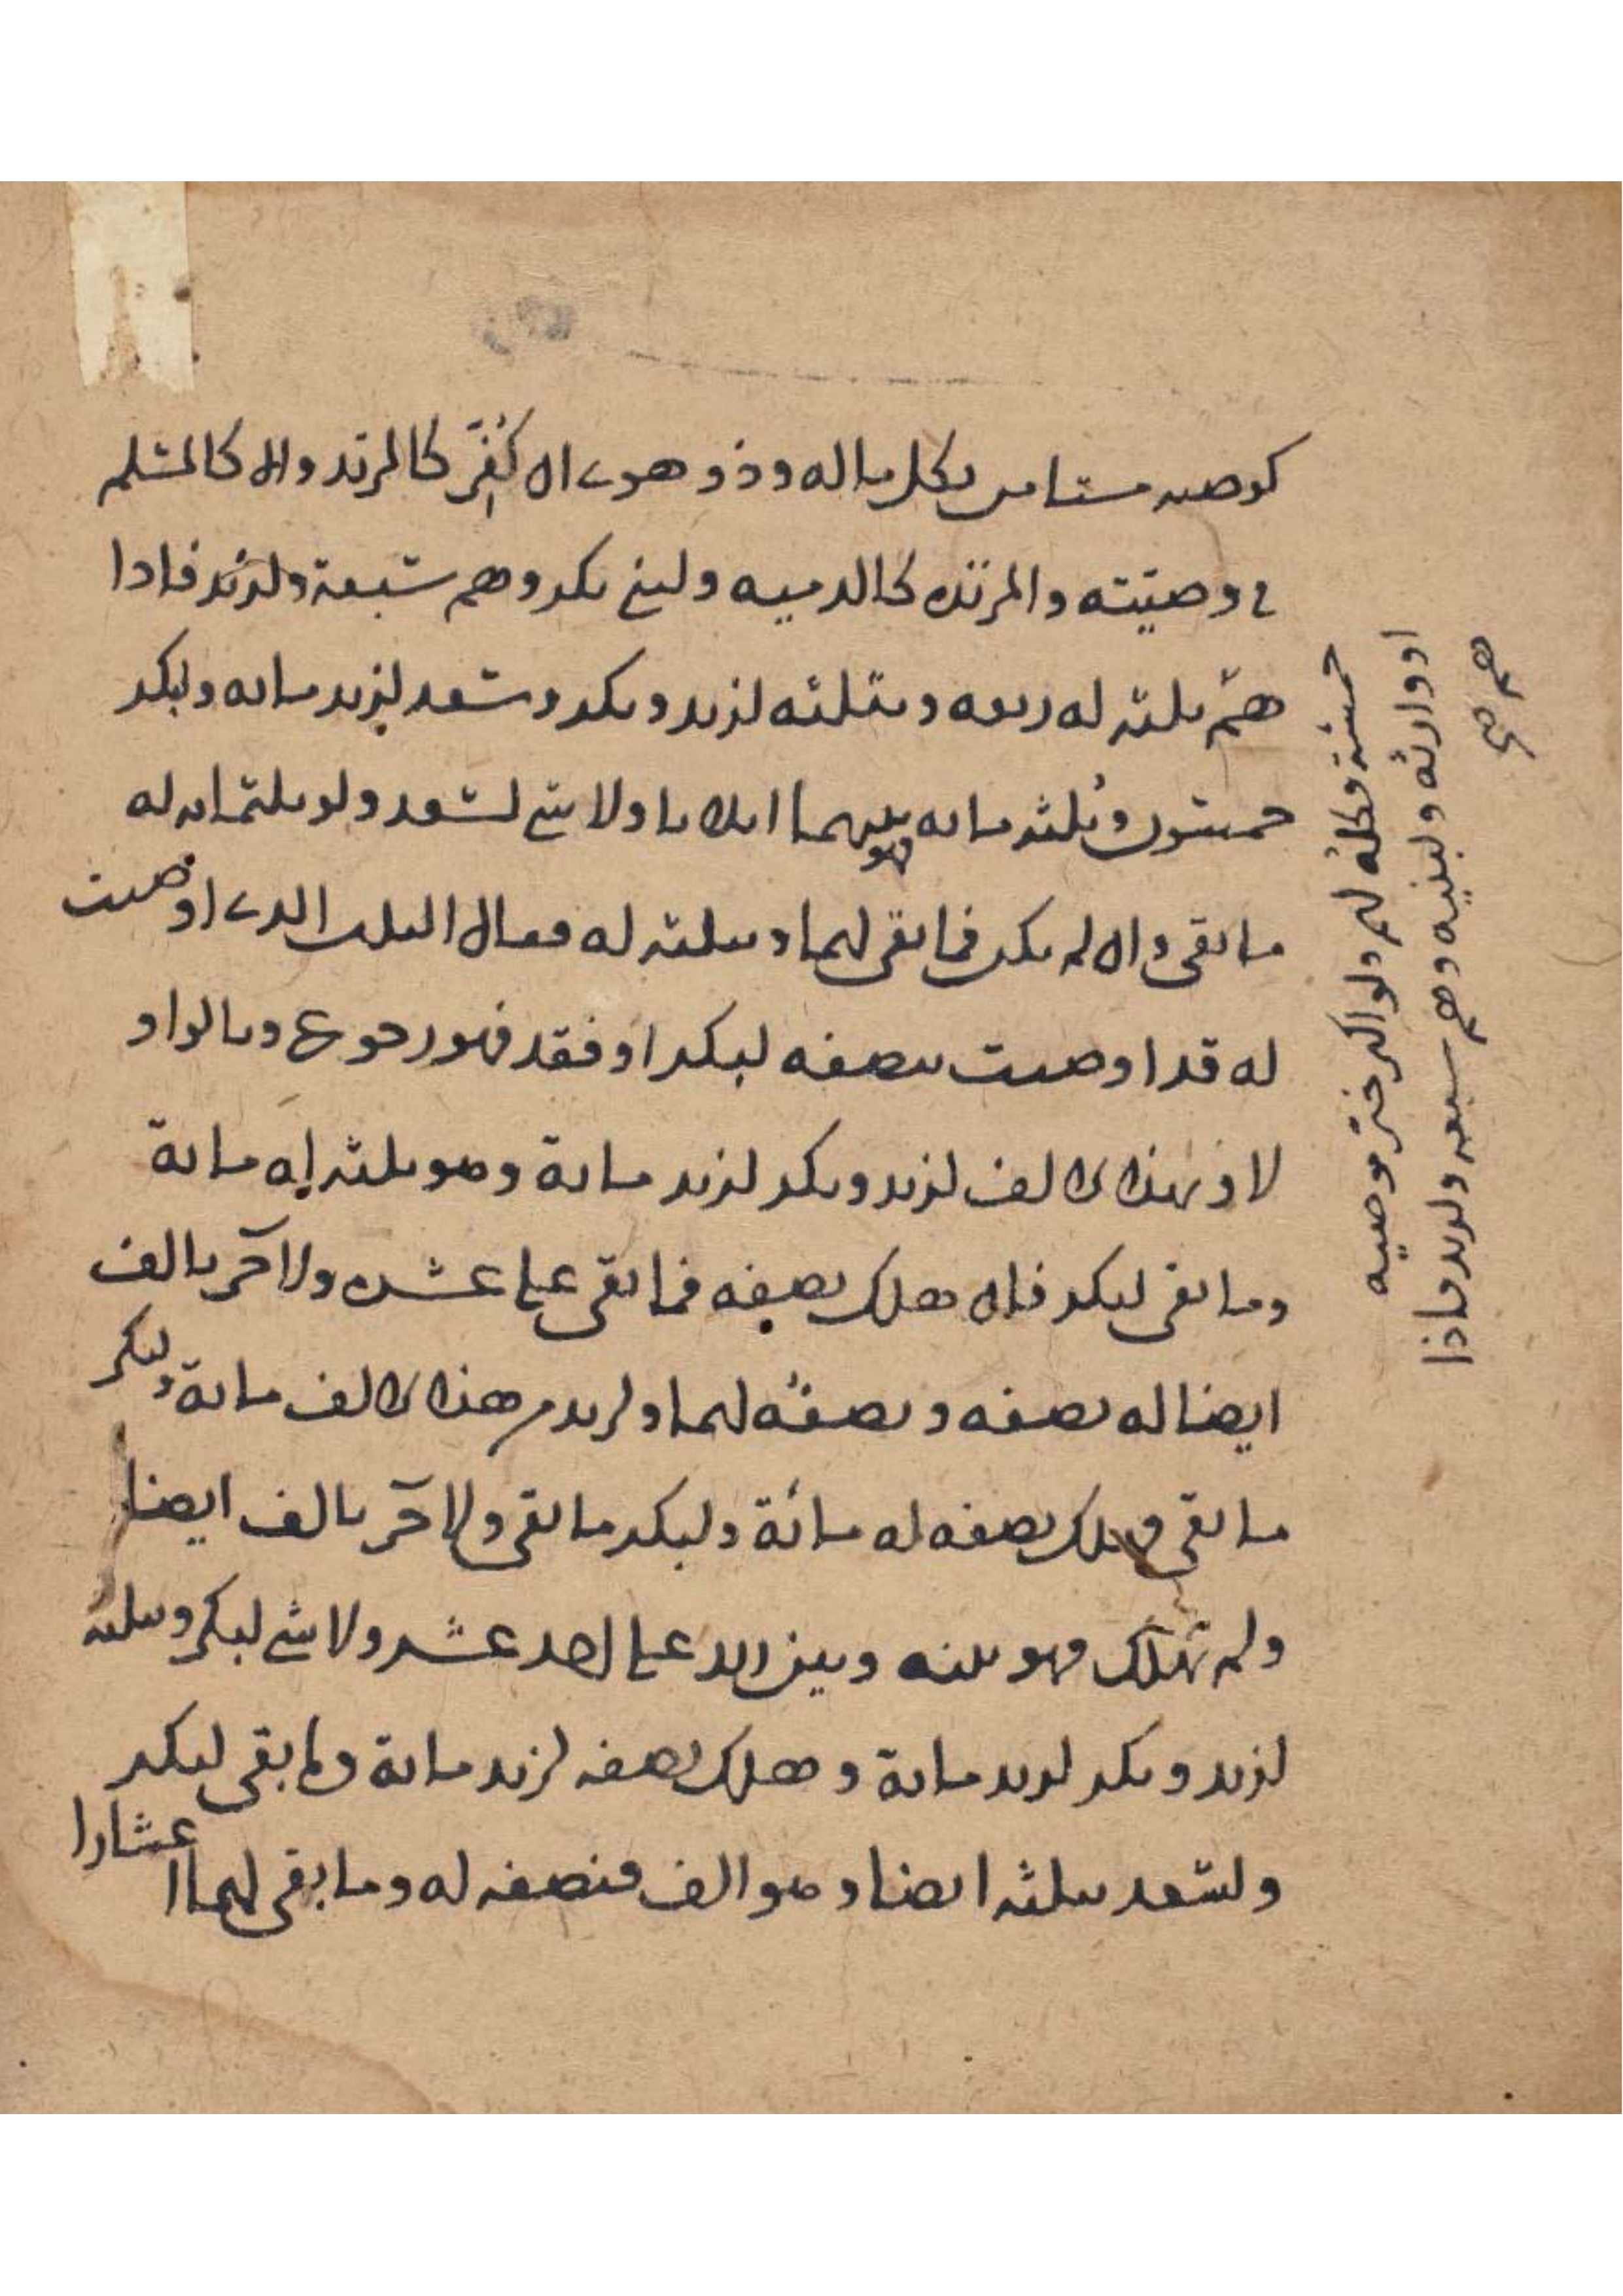 كوصيه مستامن بكل ماله وذو هوى ان كُفِّر كالمرتد والا كالمسلم
في وصيّته والمرتدة كالذمية ولبني بكر وهم سبعة ولزيد فاذا
هم ثلثة له ربعه وبثلثه لزيد وبكر وسعد لزيد مائه ولبكر
خمسون وثلثه مائه فهو بينهما اثلاثا ولا شي لسعد ولو بثلثه ان له
ما بقي وان لم يكن فما بقي لهما وبثلثه له فقال الثلث الذي اوصيت
له قد اوصيت بنصفه لبكر او فقد فهو رجوع وبالواو
لا وبهذا الالف لزيد وبكر لزيد مائة وهو ثلثه له مائة
وما بقي لبكر فان هلك نصفه فما بقي على عشرة ولاخر بالف
ايضا له نصفه ونصفه لهما ولزيد من هذا الالف مائة ولبكر
ما بقي فهلك نصفه له مائة ولبكر ما بقي ولاخر بالف ايضا
ولم تهلك فهو بينه وبين زيد على احد عشر ولا شي لبكر وبثلثه
لزيد وبكر لزيد مائة وهلك نصفه لزيد مائة وما بقي لبكر
ولسعد بثلثه ايضا وهو الف فنصفه له وما بقي لهما اعشارا
خمسة فكله لهم ولو اكثر وصيه
او وارثه ولبنيه وهم سبعه ولزيد فاذا
هم صح